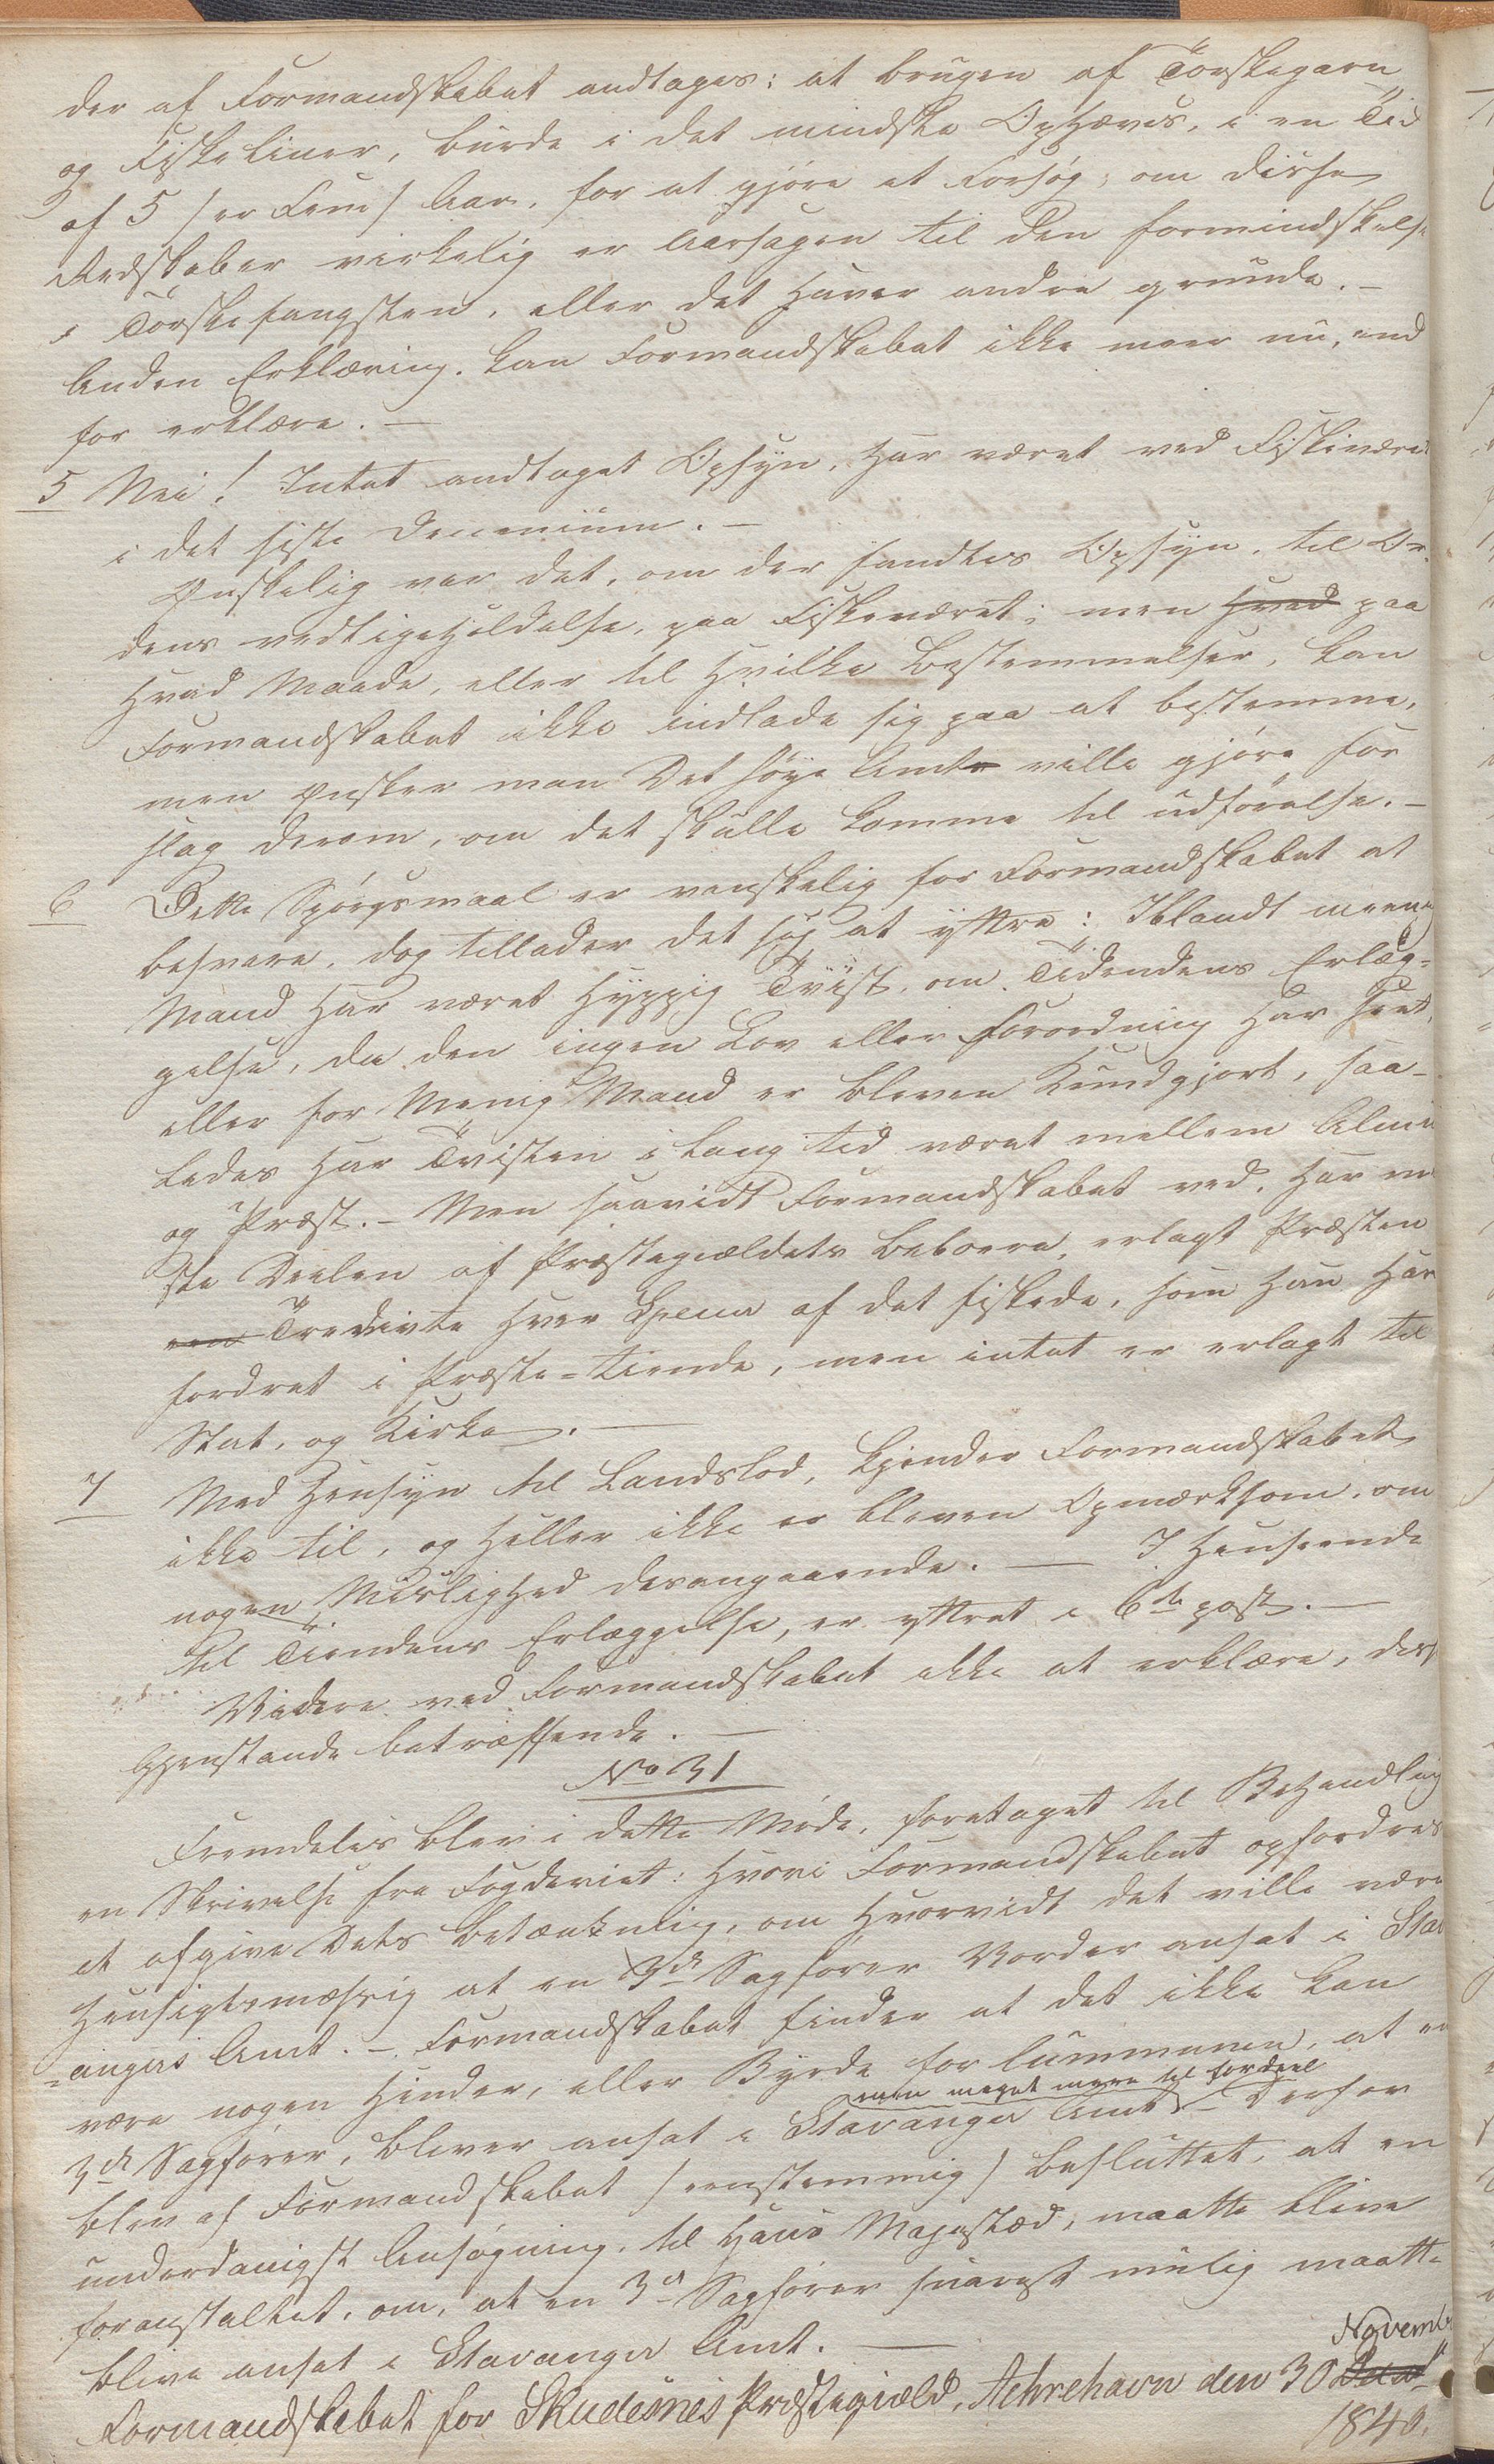 der af Formandskabet andtages: at brugen af Torskegarn
og Fiskeliner, burde i det mindste Ophæves, i en Tid
af 5 / er Fem / Aar, for at gjöre et Forsög, om disse
Redskaber virkelig er Aarsagen til den formindskelse
i Torskefangsten, eller det haver andre grunde. -
Anden Erklæring kan Formandskabet ikke meer nu, end
for erklære. -
5 Nei! Intet andtaget Opsyn, har været ved Fiskeværet
i det siste Decenium. -
Ønskelig var det, om der fandtes Opsyn, til Or-
dens vedligeholdelse, paa Fiskeværet; men hvad paa
hvad Maade, eller til hvilke Bestemmelser, kan
Formandskabet ikke indlade sig paa at bestemme,
men ønsker man Det høye Amt ville gjöre For
slag derom, om det skulle komme til udförelse. -
6 Dette Spörgsmaal er vanskelig for Formandskabet at
besvare, dog tillader det sig at yttre: Iblandt meenig
Mand har været hyppig Tvist, om Tidendens Erlæg-
gelse, da den ingen Lov eller Forordning har seet,
eller for Menig Mand er bleven Kundgjort, saa-
ledes har Tvisten i lang tid været mellem Almu
og Præst. - Men saavidt Formandskabet ved, har me
ste Deelen af Præstegieldets Beboere, erlagt Præsten
een Tredivte hver af det fiskede, som han har
fordret i Præste-tiende, men intet er erlagt til
Stat, og Kirke. -
7 Med Hensyn til Landslod, kjender Formandskabet
ikke til, og heller ikke er bleven Opmærksom, om
nogen Mislighed desangaaende. - I Henseende
til Tiendens Erlæggelse, er yttret i 6te post. -
Videre ved Formandskabet ikke at erklære, diss
Gjenstande betræffende. -
No 31
Fremdeles blev i dette Möde, foretaget til Behandling
en Skrivelse fra Fogderiet: hvori Formandskabet opfordres
at afgive Dets Betænkning, om hvorvidt det ville være
hensigtsmæssig at en 3de Sagförer Vorder ansat i Stav
-angers Amt. - Formandskabet finder at det ikke kan
være nogen hinder, eller Byrde for Cummunen, at en
men meget mere til fordeel
3de Sagförer, bliver ansat i Stavanger Amt - Derfor
blev af Formandskabet / eenstemmig / besluttet, at en
underdanigst Ansögning, til Hans Majestæd, maatte blive
foranstaltet, om, at en 3de Sagförer snarest mulig maatte
blive ansat i Stavanger Amt. -
Novembr
Formandskabet for Skudesnes Præstegield, Aehrehavn den 30
1840.